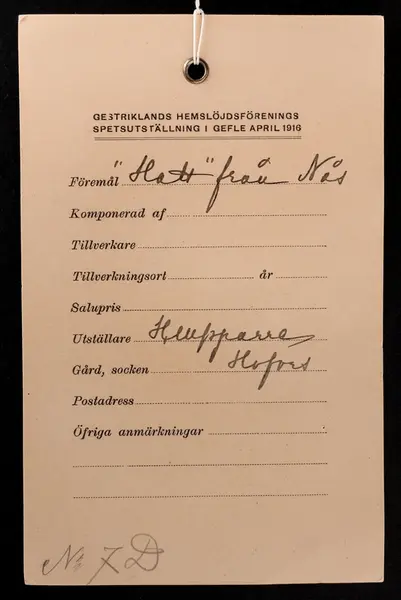 GESTRIKLANDS HEMSLÖJDSFÖRENINGS
SPETSUTSTÄLLNING I GEFLE APRIL 1916
Föremål "Hatt" från Nås
Komponerad af
Tillverkare
Tillverkningsort år
Salupris
Utställare
Gård, socken Hofors
Postadress
Öfriga anmärkningar
No 7 D